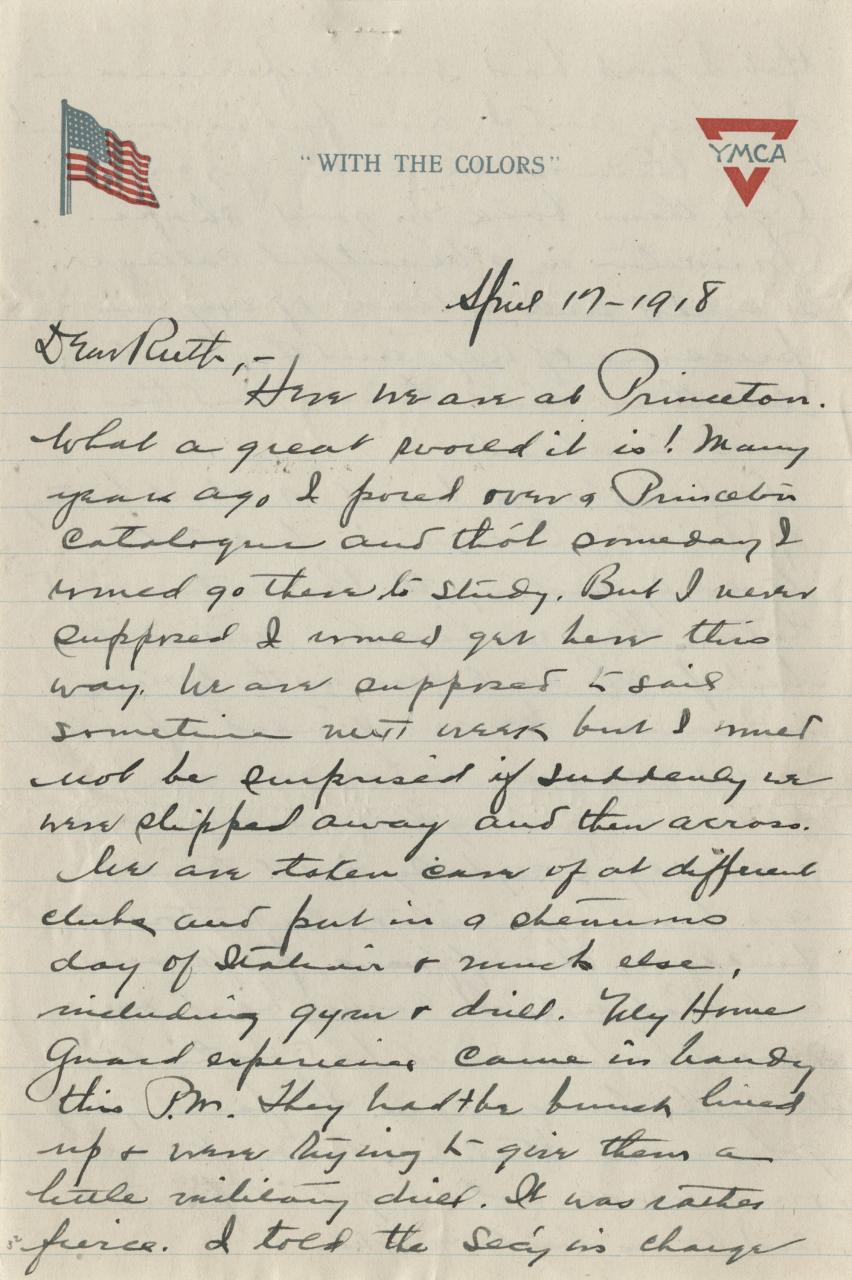 "WITH THE COLORS"
YMCA
April 17-1918
Dear Ruth,-
Here we are at Princeton.
What a great world it is! Many
years ago I pored over a Princeton
catalogue and tho't someday I
would go there to study. But I never
supposed I would get here this
way. We are supposed to sail
sometime next week but I would
not be surprised if suddenly we
were slipped away and then across.
We are taken care of at different
clubs and put in a strenuous
day of Italian & much else,
including gym & drill. My Home
Guard experience came in handy
this P.M. They had the bunch lined
up & were trying to give them a
little military drill. It was rather
fierce. I told the Sec'y in charge